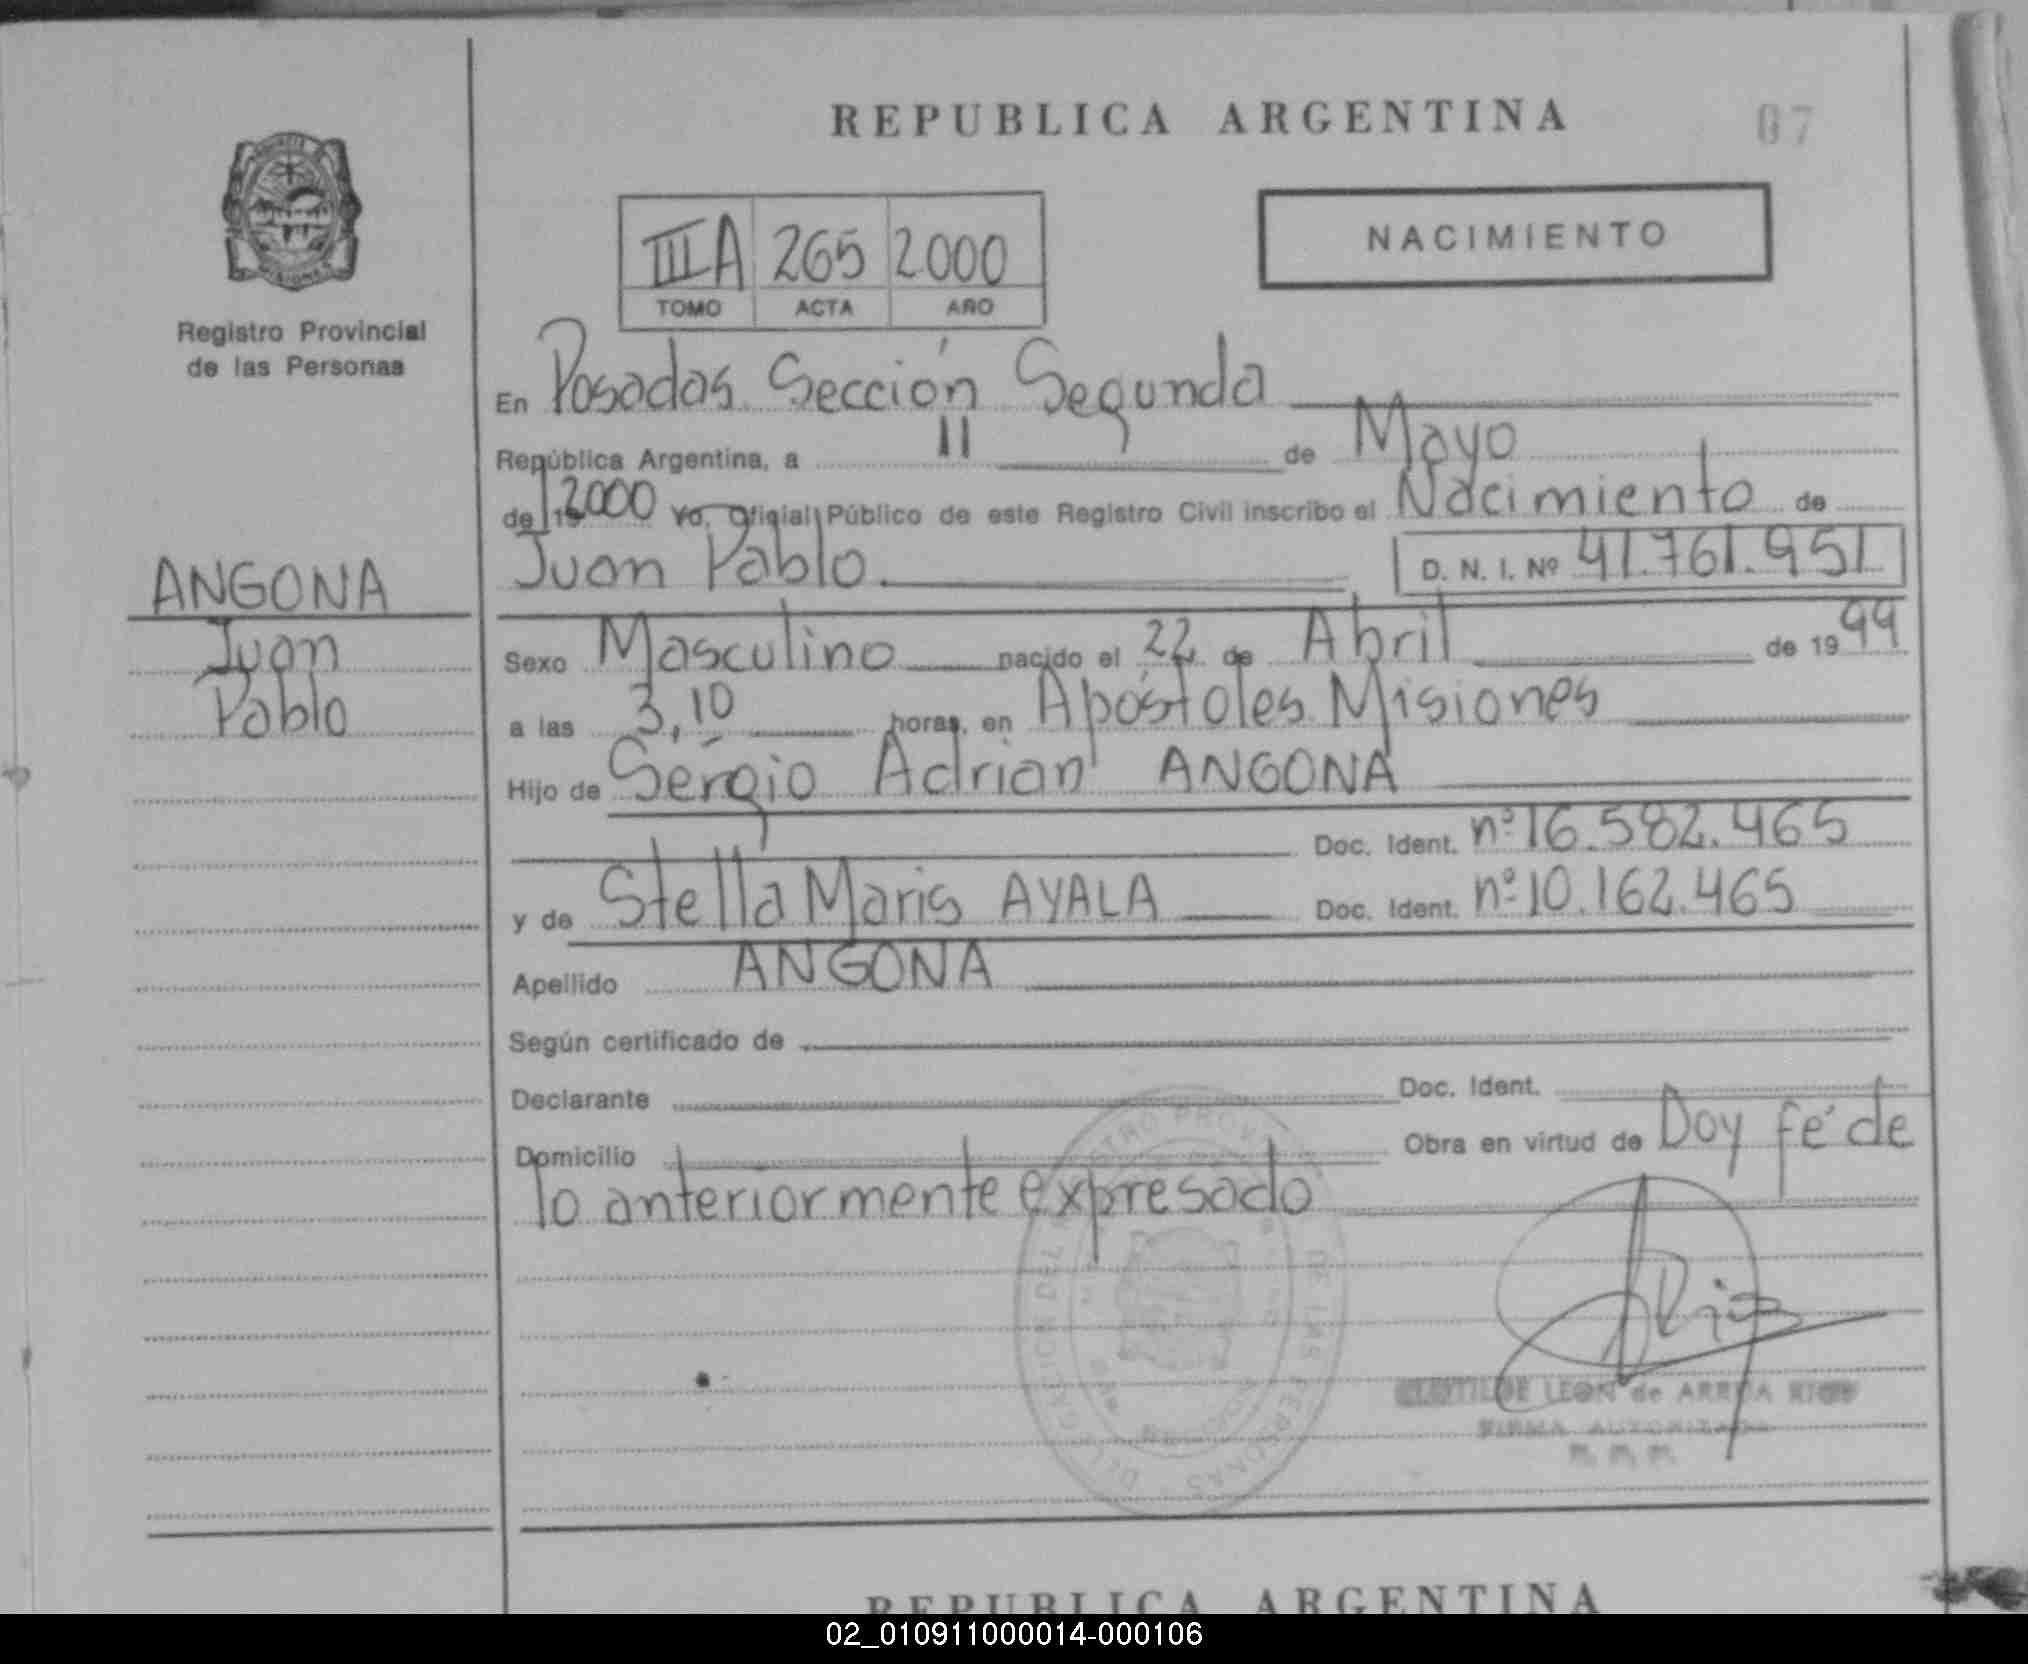 REPUBLICA ARGENTINA
07
NACIMIENTO
IIIA 265 2000
TOMO ACTA AÑO
Registro Provincial
de las Personas
En Posadas Sección Segunda
República Argentina, a 11 de Mayo
de 19 2000 Yo, Oficial Público de este Registro Civil inscribo el Nacimiento de
Juan Pablo. D. N. I. Nº 41.761.951
ANGONA
Juan
Pablo
Sexo Masculino nacido el 22 de Abril de 1999
a las 3,10 horas, en Apóstoles Misiones
Hijo de Sergio Adrian ANGONA
Doc. Ident. nº 16.582.465
y de Stella Maris AYALA Doc. Ident. nº 10.162.465
Apellido ANGONA
Según certificado de
Declarante Doc. Ident.
Domicilio Obra en virtud de Doy fé de
lo anteriormente expresado
DELEGACION DEL REGISTRO PROVINCIAL DE LAS PERSONAS
CLOTILDE LEON de ARRUA RIOS
FIRMA AUTORIZADA
REPUBLICA ARGENTINA
02_010911000014-000106